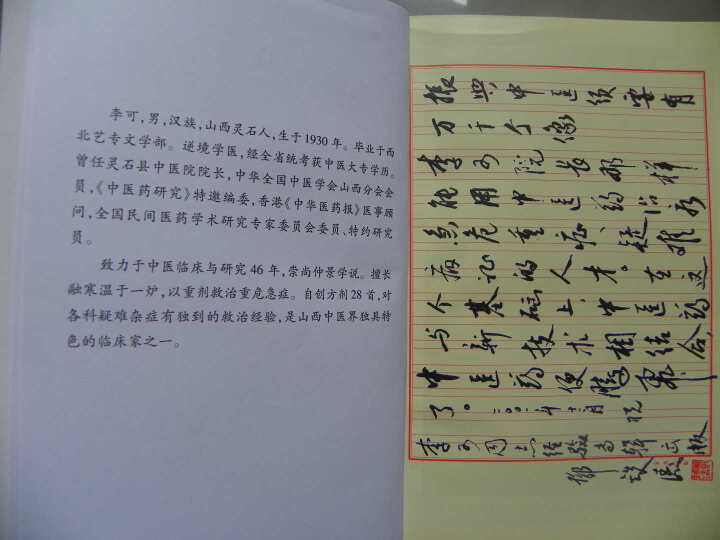 李可，男，汉族，山西灵石人，生于1930年。毕业于西
北艺专文学部。逆境学医，经全省统考获中医大专学历。
曾任灵石县中医院院长，中华全国中医学会山西分会会
员，《中医药研究》特邀编委，香港《中华医药报》医事顾
问，全国民间医药学术研究专家委员会委员、特约研究
员。
致力于中医临床与研究46年，崇尚仲景学说。擅长
融寒温于一炉，以重剂救治重危急症。自创方剂28首，对
各科疑难杂症有独到的救治经验，是山西中医界独具特
色的临床家之一。
振兴中医须要有
万千个像
李可院长那样
能用中医药治
急危重症、疑难
病证的人才。在这
个基础上，中医药
与新技术相结合，
中医药便腾飞
了。二〇〇一年十一月 祝
李可同志经验专辑出版
邓铁涛